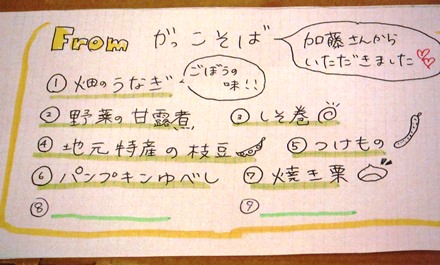 From がっこそば
加藤さんから
いただきました
① 畑のうなぎ
ごぼうの
味!!
② 野菜の甘露煮 ③ しそ巻
④ 地元特産の枝豆 ⑤ つけもの
⑥ パンプキンゆべし ⑦ 焼き栗
⑧ ⑨